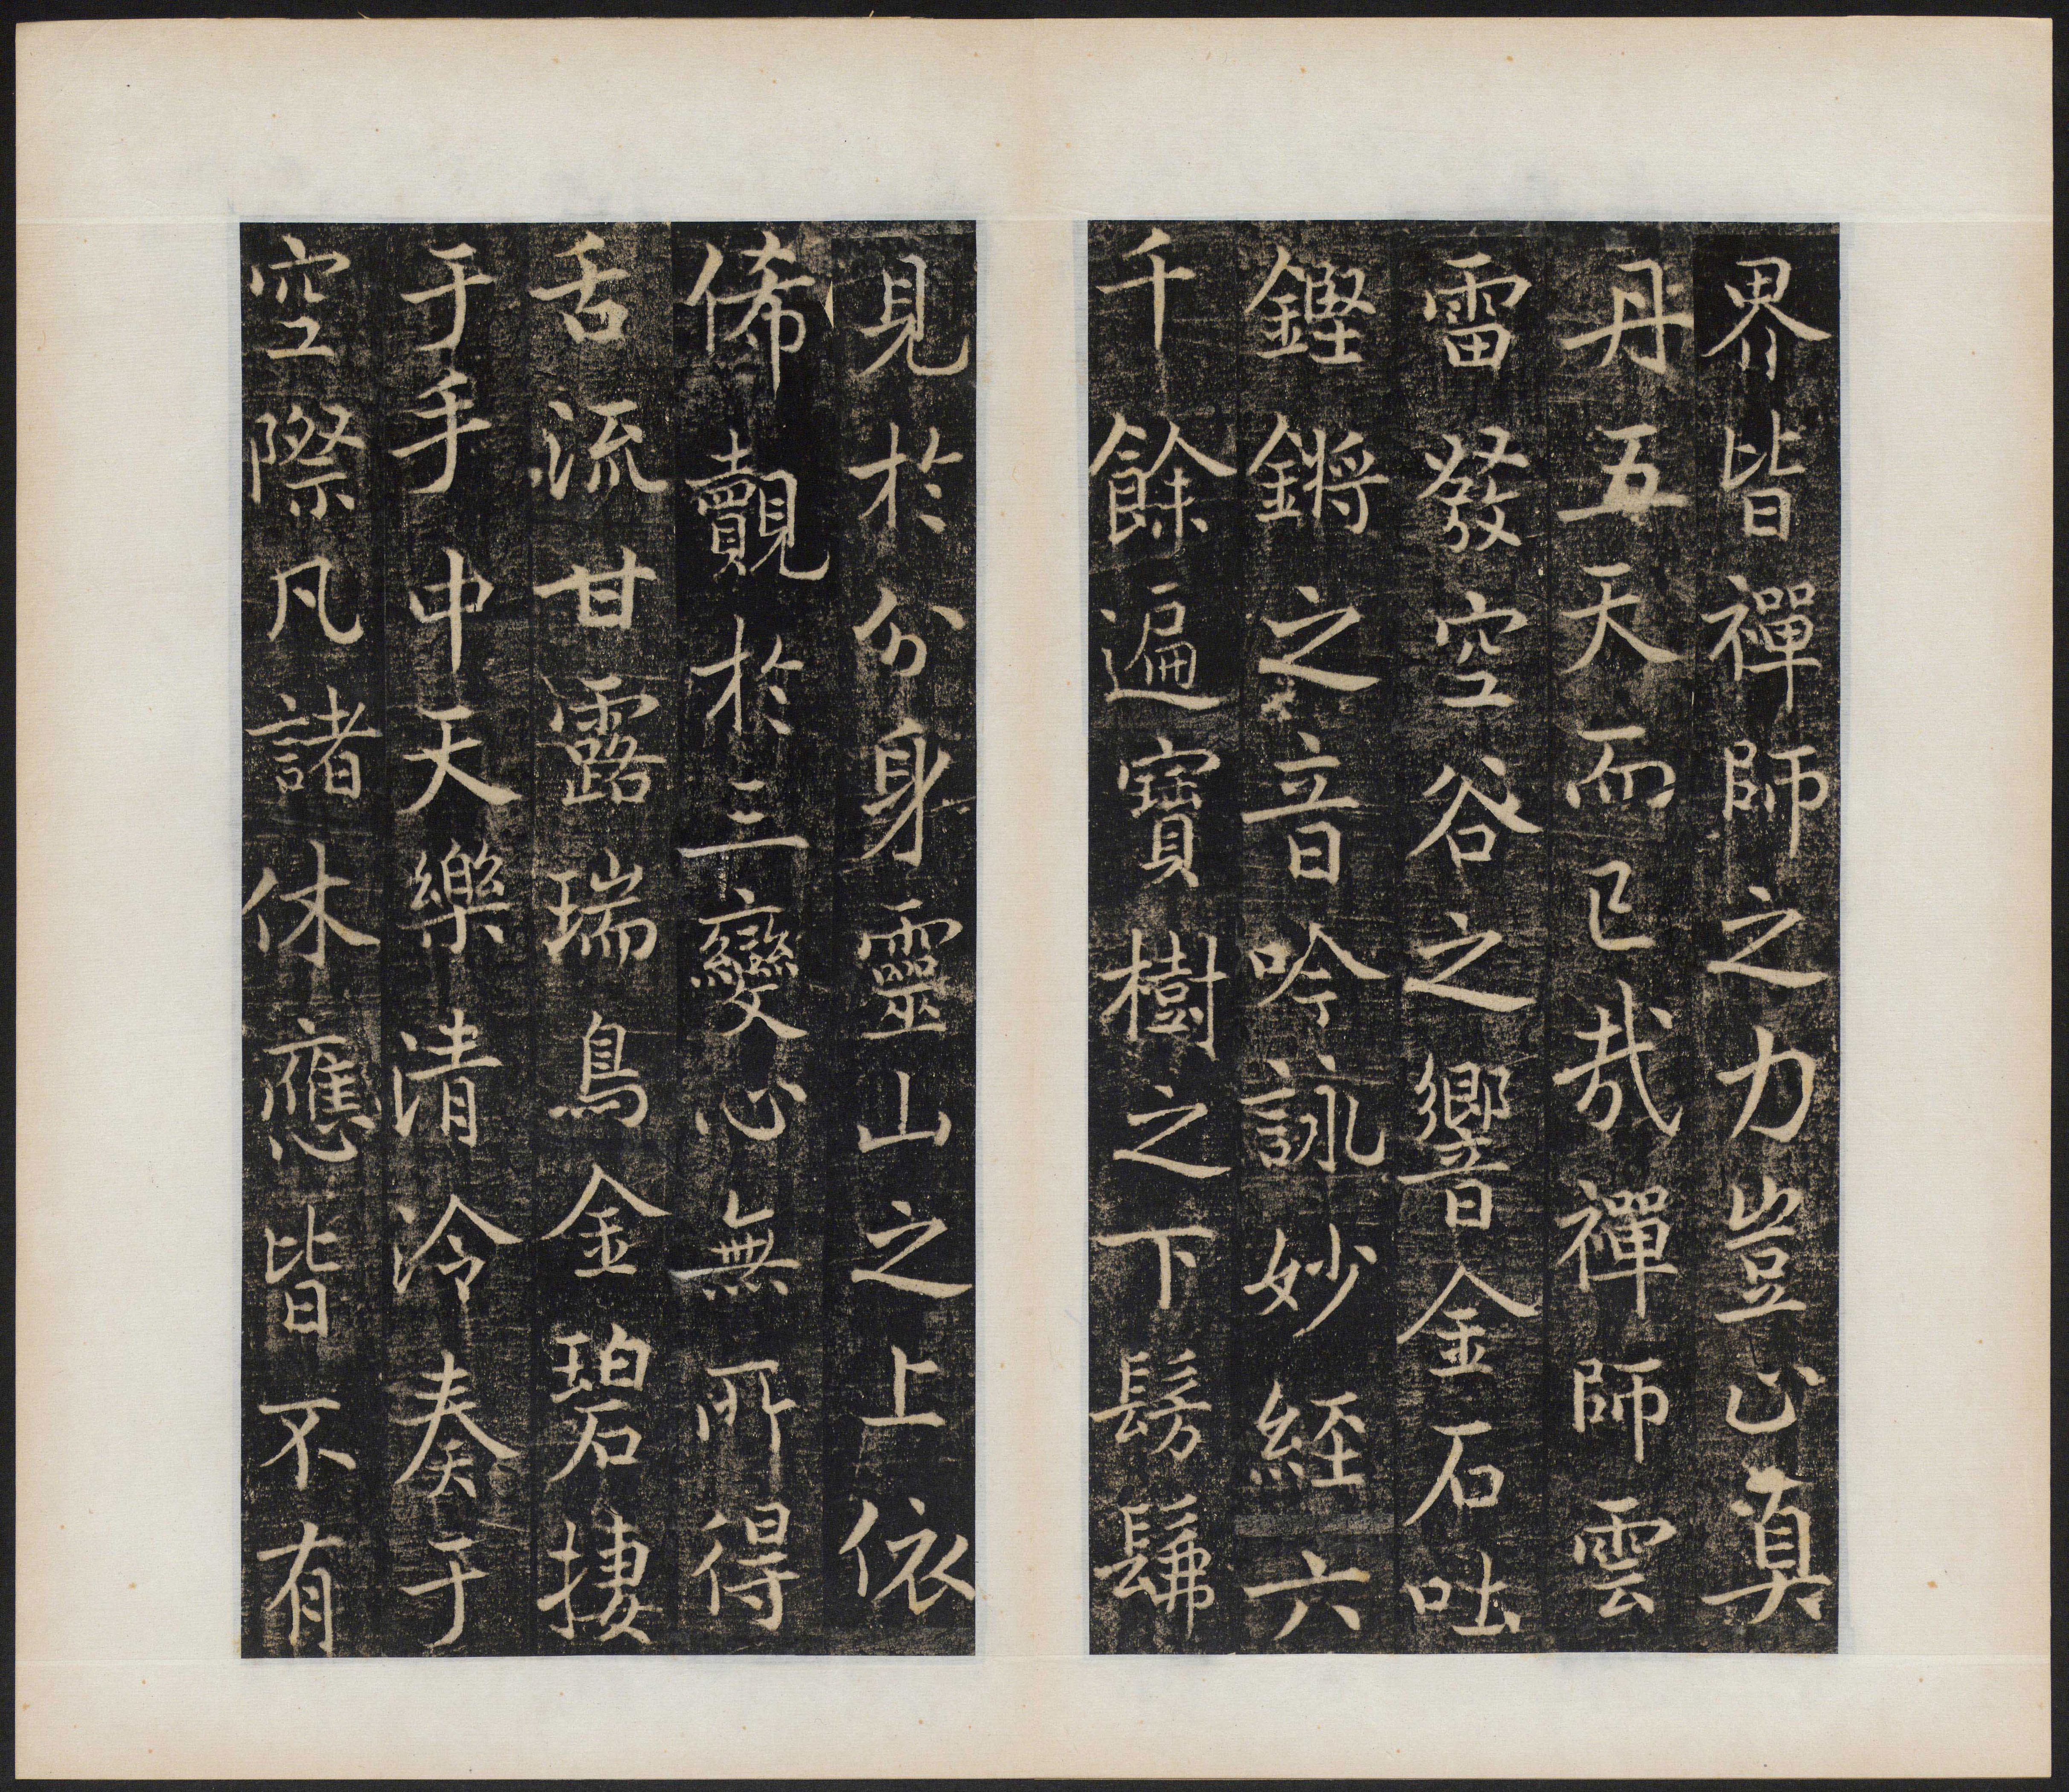 界皆禪師之力豈止真
丹五天而已哉禪師雲
雷發空谷之響金石吐
鏗鏘之音吟詠妙經六
千餘遍寶樹之下髣髴
見於分身靈山之上依
俙觀於三變心無所得
舌流甘露瑞鳥金碧捿
于手中天樂清泠奏于
空際凡諸休應皆不有